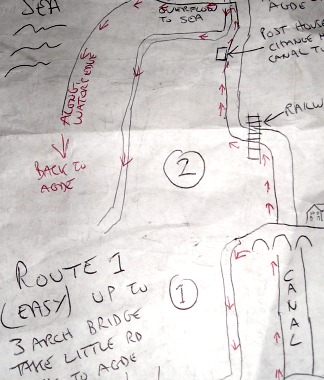 SEA
OVERFLOW
TO SEA
AGDE
POST HOUSE
CHANGE H
CANAL TO
ALONG
WATERS EDGE
RAILW
BACK TO
AGDE
2
ROUTE 1
(EASY) UP TO
3 ARCH BRIDGE
TAKE LITTLE RD
TO AGDE
1
CANAL